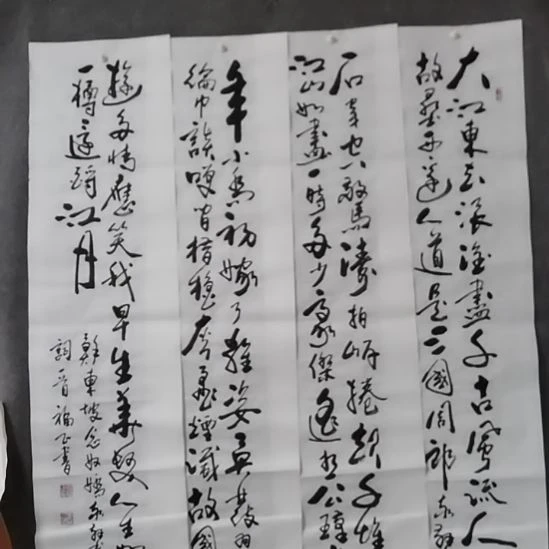 大江東去浪淘盡千古風流人
故壘西邊人道是三國周郎赤壁
石穿空驚濤拍岸捲起千堆
江山如畫一時多少豪傑遙想公瑾
年小喬初嫁了雄姿英發羽
綸巾談笑間檣櫓灰飛煙滅故國
遊多情應笑我早生華髮人生如
一樽還酹江月
蘇東坡念奴嬌赤壁
詞 福 書